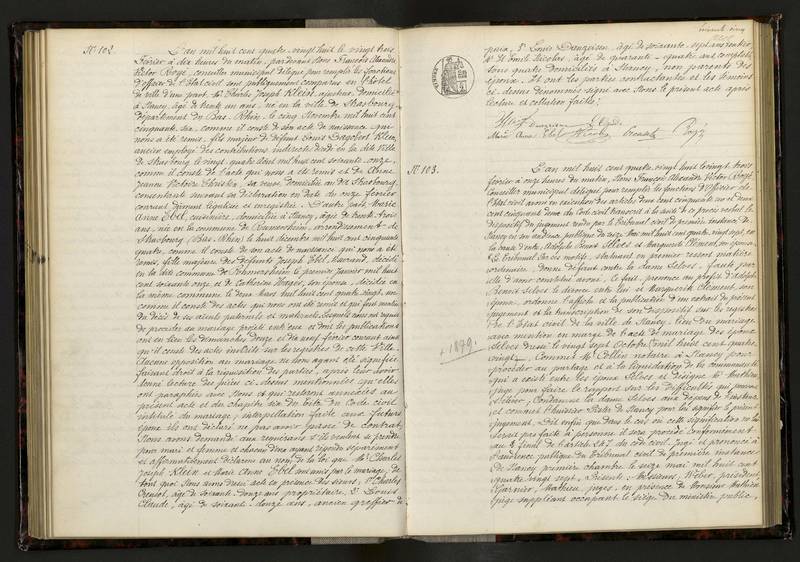 N° 102.
L'an mil huit cent quatre-vingt-huit le vingt trois
Février à dix heures du matin, pardevant Nous François Alexandre
Victor Royé, conseiller municipal délégué pour remplir les fonctions
d'officier de l'Etat civil sont publiquement comparus en l'hôtel
de ville d'une part, Mr Charles Joseph Klein, ajusteur, domicilié
à Nancy, âgé de trente un ans, né en la ville de Strasbourg
département du Bas-Rhin, le cinq Novembre mil huit cent
cinquante six, comme il conste de son acte de naissance qui
nous a été remis, fils majeur de défunt Louis Dagobert Klein,
ancien employé des contributions indirectes décédé en la dite Ville
de Strasbourg le vingt quatre Août mil huit cent soixante onze,
comme il conste de l'acte qui nous a été remis et de Anne
Jeanne Victoire sa veuve domiciliée au dit Strasbourg,
consentant suivant sa déclaration en date du onze février
courant dûment légalisée et enregistrée. D'autre part, Marie
Anne Ebel, cuisinière, domiciliée à Nancy, âgée de trente trois
ans, née en la commune de arrondissement de
Strasbourg (Bas-Rhin) le huit Décembre mil huit cent cinquante
quatre, comme il conste de son acte de naissance qui nous a été
remis, fille majeure des défunts Joseph Ebel, décédé
en la dite commune de le premier Janvier mil huit
cent soixante onze et de Catherine son épouse, décédée en
la même commune le deux Mars mil huit cent quatre-vingt-un
comme il conste des actes qui nous ont été remis et qui font mention
du décès de ses aïeuls paternels et maternels. Lesquels nous ont requis
de procéder au mariage projeté entre eux et dont les publications
ont eu lieu les dimanches douze et dix neuf février courant ainsi
qu'il conste des actes inscrits sur les registres de cette Ville.
Aucune opposition au mariage ne nous ayant été signifiée
faisant droit à la réquisition des parties, après leur avoir
donné lecture des pièces ci-dessus mentionnées qu'elles
ont paraphées avec Nous et qui resteront annexées au
présent acte et du chapitre six du titre du Code civil
intitulé du mariage, interpellation faite aux futurs
époux ils ont déclaré ne pas avoir passé de contrat.
Nous avons demandé aux requérants s'ils veulent se prendre
pour mari et femme et chacun d'eux ayant répondu séparément
et affirmativement déclarons au nom de la loi que Mr Charles
Joseph Klein et Marie Anne Ebel sont unis par le mariage, de
tout quoi Nous avons dressé acte en présence des sieurs, 1° Charles
âgé de soixante-douze ans, propriétaire, 2° Louis
Claude, âgé de soixante-douze ans, ancien greffier de
paix, 3° Louis Danzeisen, âgé de soixante-sept ans, rentier,
Mr Emile Nicolas, âgé de quarante-quatre ans, comptable
tous quatre domiciliés à Nancy, non parents des
époux. Et ont les parties contractantes et les témoins
ci-dessus dénommés signé avec Nous le présent acte après
lecture et collation faites.
Marie Anne Ebel
N° 103.
L'an mil huit cent quatre-vingt-huit le vingt trois
février à onze heures du matin, Nous François Alexandre Victor Royé
Conseiller municipal délégué pour remplir les fonctions d'Officier de
l'Etat civil avons en exécution des articles deux cent cinquante un et deux
cent cinquante deux du Code civil transcrit à la suite de ce procès verbal le
dispositif du jugement rendu par le Tribunal civil de première instance de
Nancy en son audience publique du seize Mai mil huit cent quatre-vingt-sept, en
la cause d'entre Adolphe Benoit Selves et Marguerite Clément, son épouse.
"Le Tribunal Par ces motifs, statuant en premier ressort matière
ordinaire. Donne défaut contre la dame Selves, faute par
elle d'avoir constitué avoué. Ce fait, prononce au profit d'Adolphe
Benoit Selves le divorce entre lui et Marguerite Clément, son
épouse, ordonne l'affiche et la publication d'un extrait du présent
jugement et la transcription de son dispositif sur les registres
de l'Etat civil de la ville de Nancy, lieu du mariage
avec mention en marge de l'acte de mariage des époux
Selves dressé le vingt sept Octobre mil huit cent quatre
vingt. Commet Me Collin notaire à Nancy pour
procéder au partage et à la liquidation de la communauté
qui a existé entre les époux Selves et désigne Mr Mathieu
juge pour faire le rapport sur les difficultés qui pourraient
s'élever, Condamne la dame Selves aux dépens de l'instance
et commet l'huissier de Nancy pour lui signifier le présent
jugement, Dit enfin que dans le cas où cette signification ne lui
serait pas faite à personne il sera procédé conformément
au § final de l'article 247 du code civil. Jugé et prononcé à
l'audience publique du Tribunal civil de première instance
de Nancy première chambre le seize mai mil huit cent
quatre vingt sept, Présents: Messieurs, Weber, président,
Garnier, Mathieu, juges, en présence de Monsieur Mathieu
juge suppléant occupant le siège du ministère public,
+ 1879.